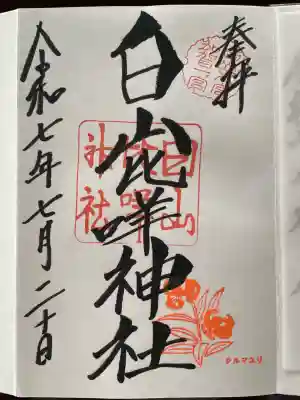 奉拝
白山比咩神社
令和七年七月二十日
白山
クルマユリ